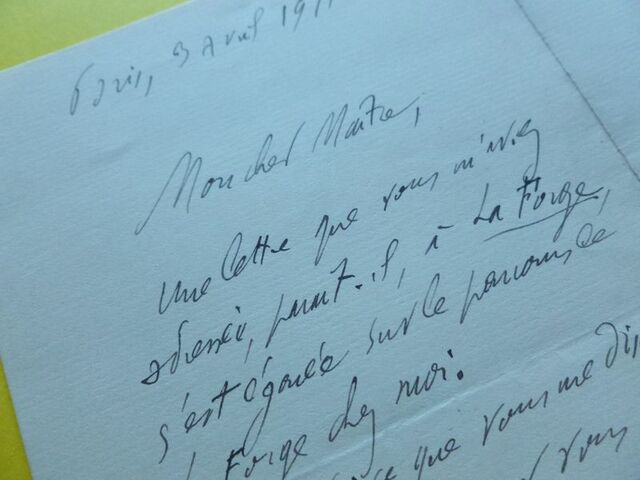 Paris, 3 Avril 191
Mon cher Maître,
Une lettre que vous m'aviez
adressée, paraît-il, à La Forge,
s'est égarée sur le parcours de
Forge chez moi.
que vous me dis
vous